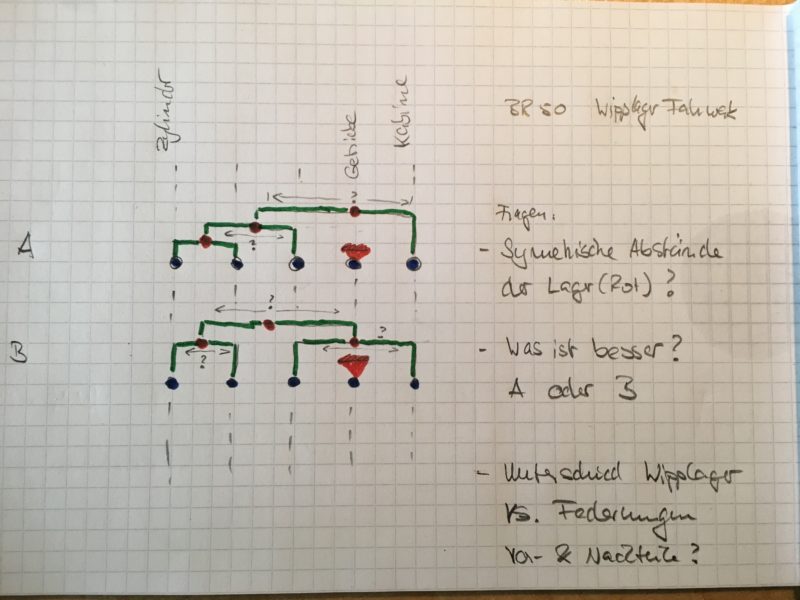 Zylinder
Getriebe
Kabine
BR 50 Wipplager Fahrwerk
A
?
B
?
?
?
Fragen:
- Symetrische Abstände
der Lager (Rot) ?
- Was ist besser?
A oder B
- Unterschied Wipplager
vs. Federungen
Vor- & Nachteile?